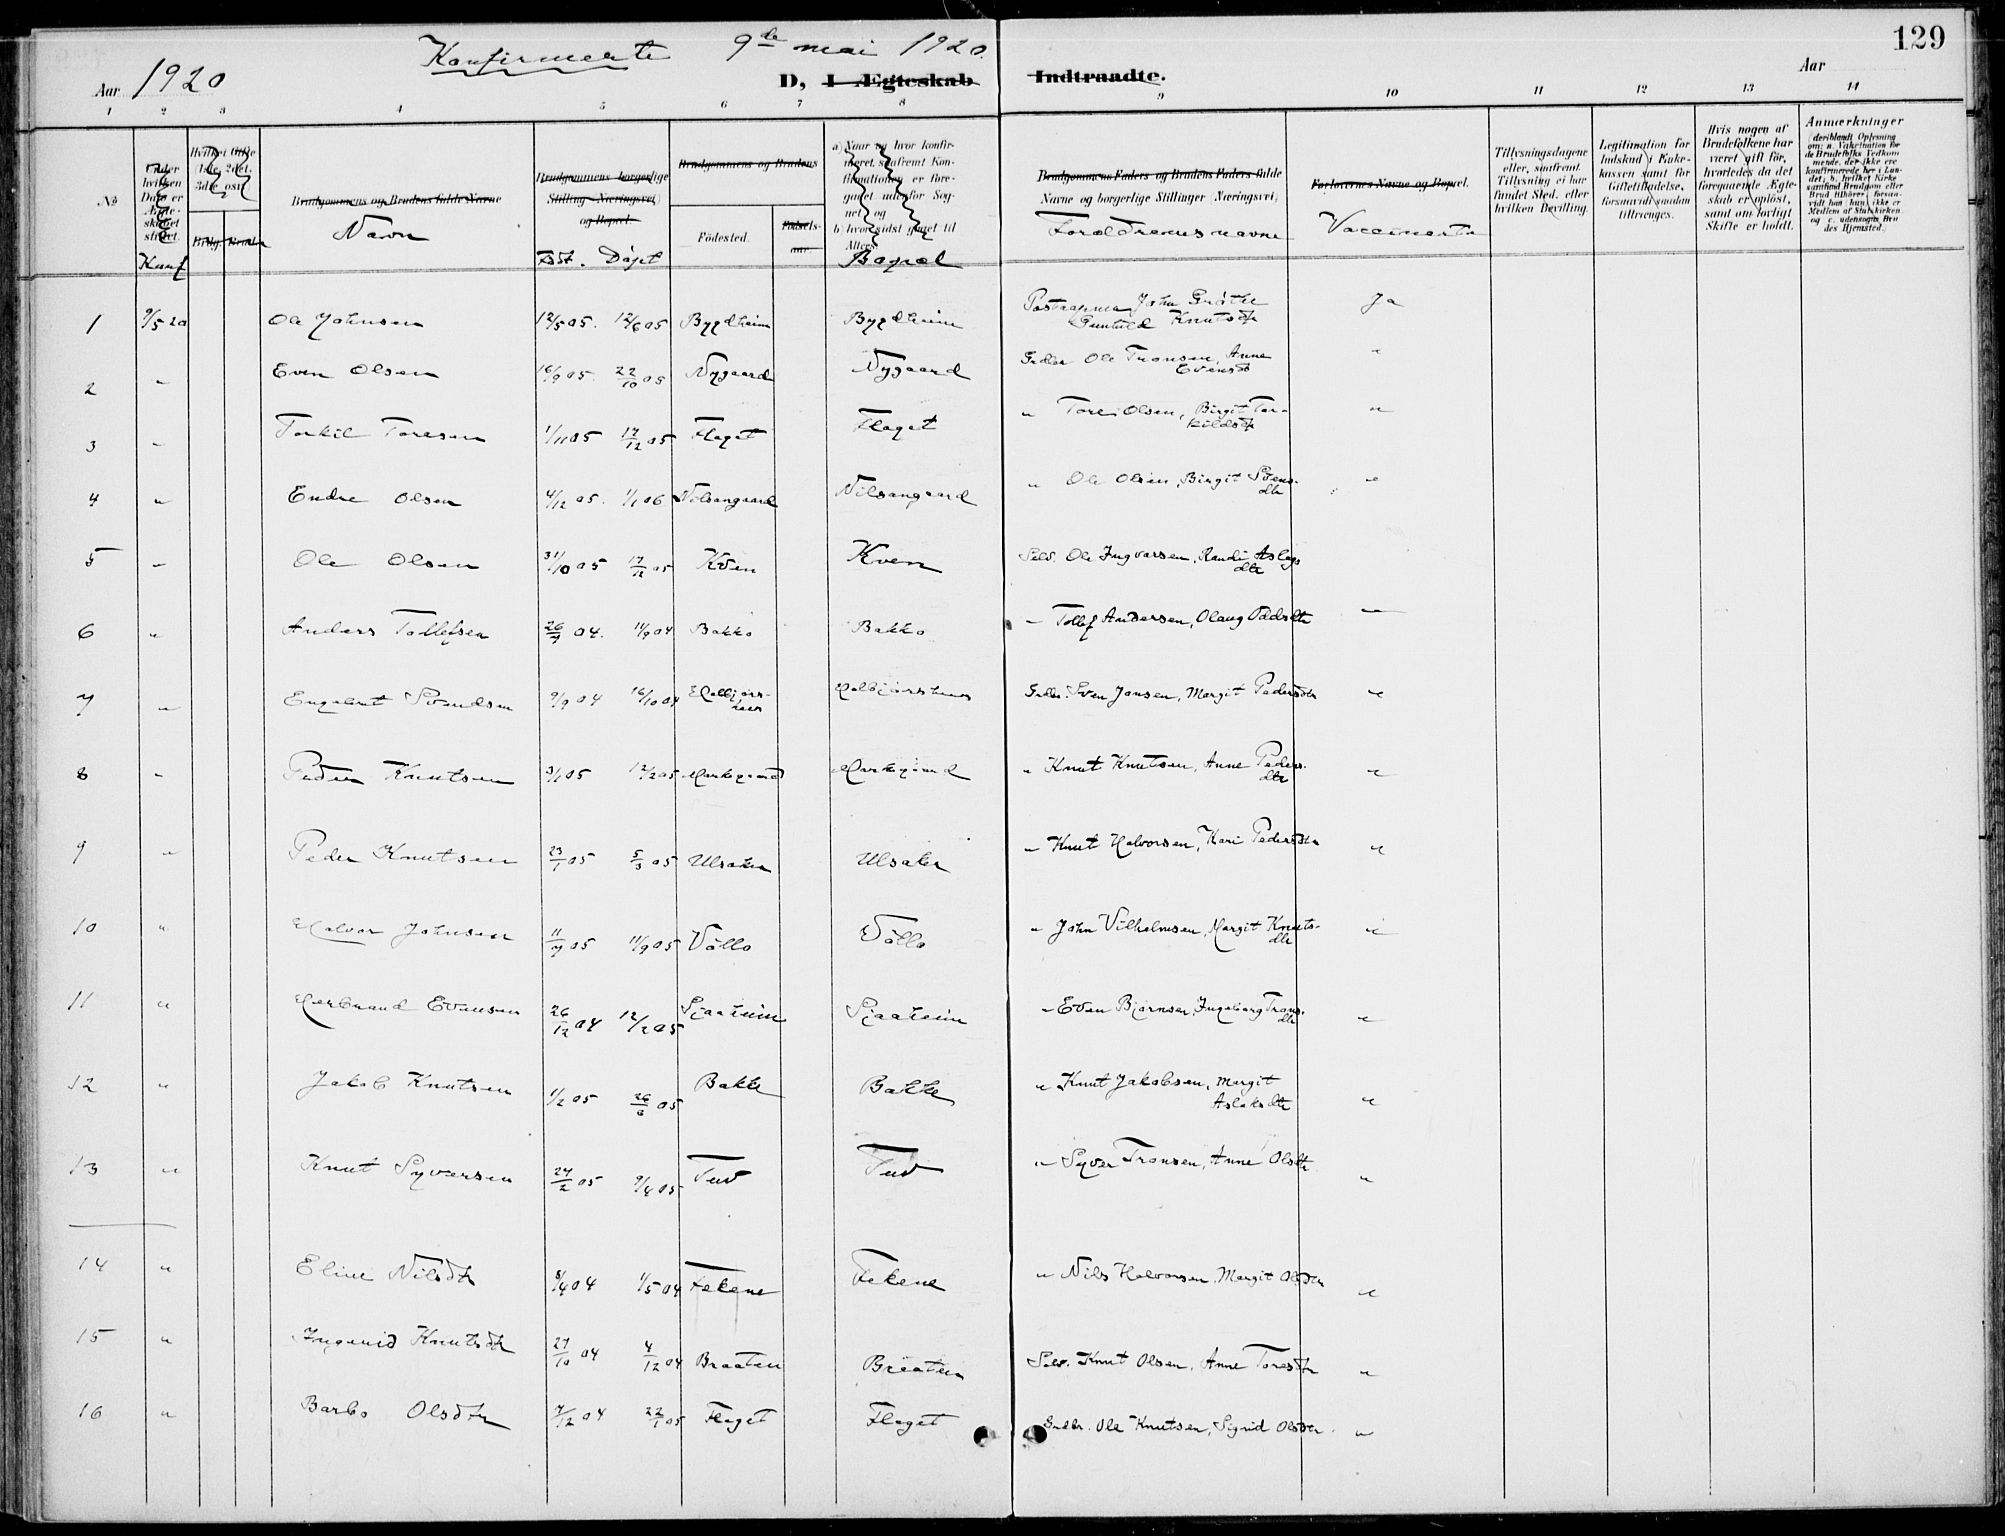 129
Konfirmerte 9de mai 1920.
Aar 1920 D, I Ægteskab Indtraadte. Aar
1 2 3 4 5 6 7 8 9 10 11 12 13 14
№
Under hvilken Dato er Ægteskabet stiftet.
Konf
Hvilket Gifte 1ste, 2det, 3die osv.
Brudg. Bruden
Brudgommens og Brudens fulde Navne
Navn
Brudgommens borgerlige Stilling (Næringsvei) og Bopæl.
Født. Døpt
Brudgommens og Brudens
Födested. Födsels-aar.
a) Naar og hvor konfirmeret, saafremt Konfirmationen er foregaaet udenfor Sognet, og
b) hvor sidst gaaet til Alters.
Bopæl
Brudgommens Faders og Brudens Faders fulde Navne og borgerlige Stillinger (Næringsvei)
Forældrenes navne
Forlovernes Navne og Bopæl.
Vaccinerte
Tillysningsdagene eller, saafremt Tillysning ei har fundet Sted, efter hvilken Bevilling.
Legitimation for Indskud i Enkekassen samt for Giftetilladelse, forsaavidt saadan tiltrænges.
Hvis nogen af Brudefolkene har været gift før, hvorledes da det foregaaende Ægteskab er oplöst, samt om lovligt Skifte er holdt.
Anmærkninger
1 9/5 20 Ole Johnsen 12/5 05. 12/6 05 Bygdheim Bygdheim Postaapner John Grøthe Gunhild Knutsdtr Ja
2 " Even Olsen 16/9 05. 22/10 05 Nygaard Nygaard Grdbr Ole Tronsen, Anne Evensdtr "
3 " Torkil Toresen 1/11 05 17/12 05 Flaget Flaget " Tore Olsen, Birgit Torkildsdtr "
4 " Endre Olsen 4/12 05. 1/1 06 Nilsengaard Nilsengaard " Ole Olsen, Birgit Svensdtr "
5 " Ole Olsen 31/10 05 17/12 05 Kven Kven Selv. Ole Ingvarsen, Randi Aslagsdtr
6 " Anders Tollefsen 26/7 04. 11/9 04 Bakko Bakko " Tollef Andersen, Olaug Oddsdtr "
7 " Engebret Svendsen 9/9 04 16/10 04 Grdbr. Sven Jansen, Margit Pedersdtr "
8 " Peder Knutsen 3/1 05 12/2 05 Markegaard Markegaard " Knut Knutsen, Anne Pedersdtr "
9 " Peder Knutsen 23/1 05 5/3 05 Ulsaker Ulsaker " Knut Halvorsen, Kari Pedersdtr "
10 " Halvor Johnsen 11/7 05 11/9 05 Vøllo Vøllo " John Vilhelmsen, Margit Knutsdtr "
11 " Herbrand Evensen 26/12 04 12/2 05 Sjaaheim Sjaaheim " Even Bjørnsen, Ingeborg Tronsdtr "
12 " Jakob Knutsen 1/2 05 26/3 05 Bakke Bakke " Knut Jakobsen, Margit Aslaksdtr "
13 " Knut Syversen 24/2 05 9/4 05 Tuv Tuv " Syver Tronsen, Anne Olsdtr "
14 " Eline Nilsdtr 8/4 04 1/5 04 Fekene Fekene " Nils Halvorsen, Margit Olsdtr "
15 " Ingerid Knutsdtr 27/10 04 4/12 04 Braaten Braaten Selv. Knut Olsen, Anne Toresdtr "
16 " Barbo Olsdtr 7/12 04 22/1 05 Flaget Flaget Grdbr. Ole Knutsen, Sigrid Olsdtr. "